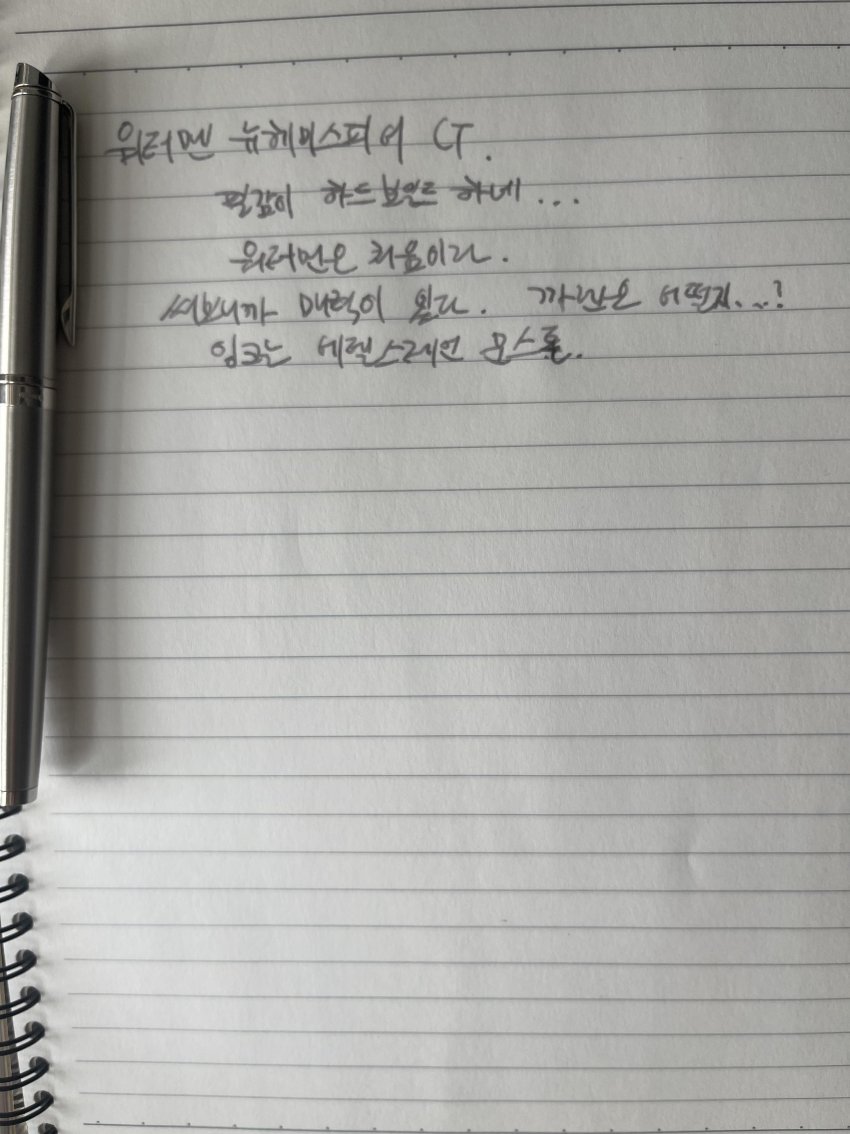 워터맨 뉴헤미스피어 CT.
필감이 하드보일드 하네...
워터맨은 처음이라.
써보니까 매력이 있다. 까렌은 어떨지...?
잉크는 그레이